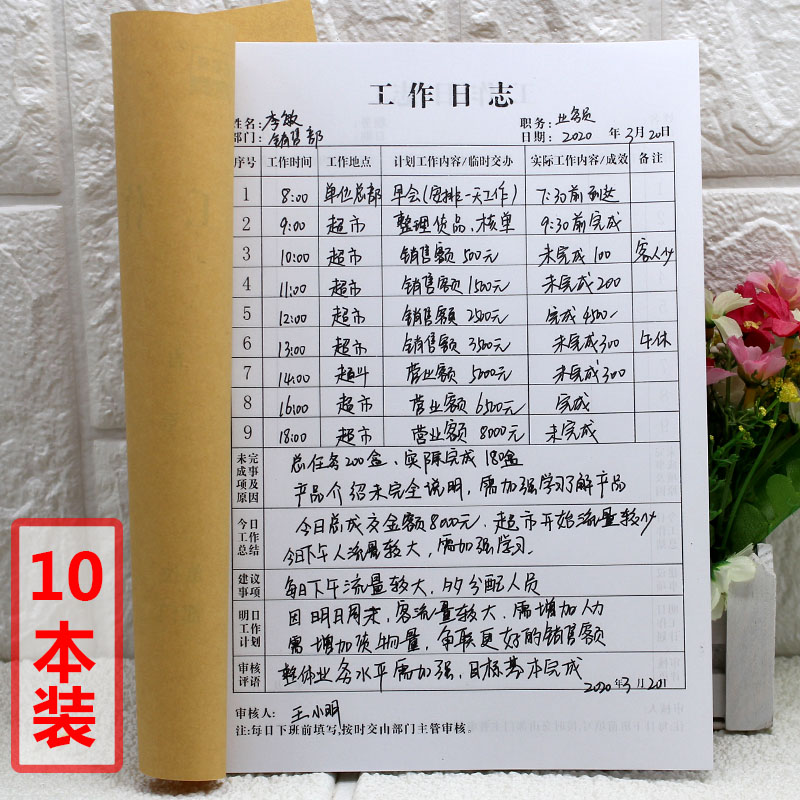 工作日志
姓名: 李敏 职务: 业务员
部门: 销售部 日期: 2020 年 3月 20日
序号 工作时间 工作地点 计划工作内容/临时交办 实际工作内容/成效 备注
1 8:00 单位总部 早会(安排一天工作) 7:30前到达
2 9:00 超市 整理货品、核单 9:30前完成
3 10:00 超市 销售额 500元 未完成 100 客人少
4 11:00 超市 销售额 1500元 未完成 200
5 12:00 超市 销售额 2500元 完成 4500
6 13:00 超市 销售额 3500元 未完成 300 午休
7 14:00 超市 营业额 5000元 未完成 300
8 16:00 超市 营业额 6500元 完成
9 18:00 超市 营业额 8000元 未完成
未完成事项及原因 总任务200盒、实际完成180盒
产品介绍未完全说明,需加强学习了解产品
今日工作总结 今日总成交金额8000元、超市开始流量较少
今日下午人流量较大,需加强学习.
建议事项 每日下午流量较大,多分配人员
明日工作计划 因明日周末,客流量较大、需增加人力
需增加货物量,争取更好的销售额
审核评语 整体业务水平需加强,目标基本完成
2020年3月201
审核人: 王小明
注:每日下班前填写,按时交由部门主管审核。
10本装